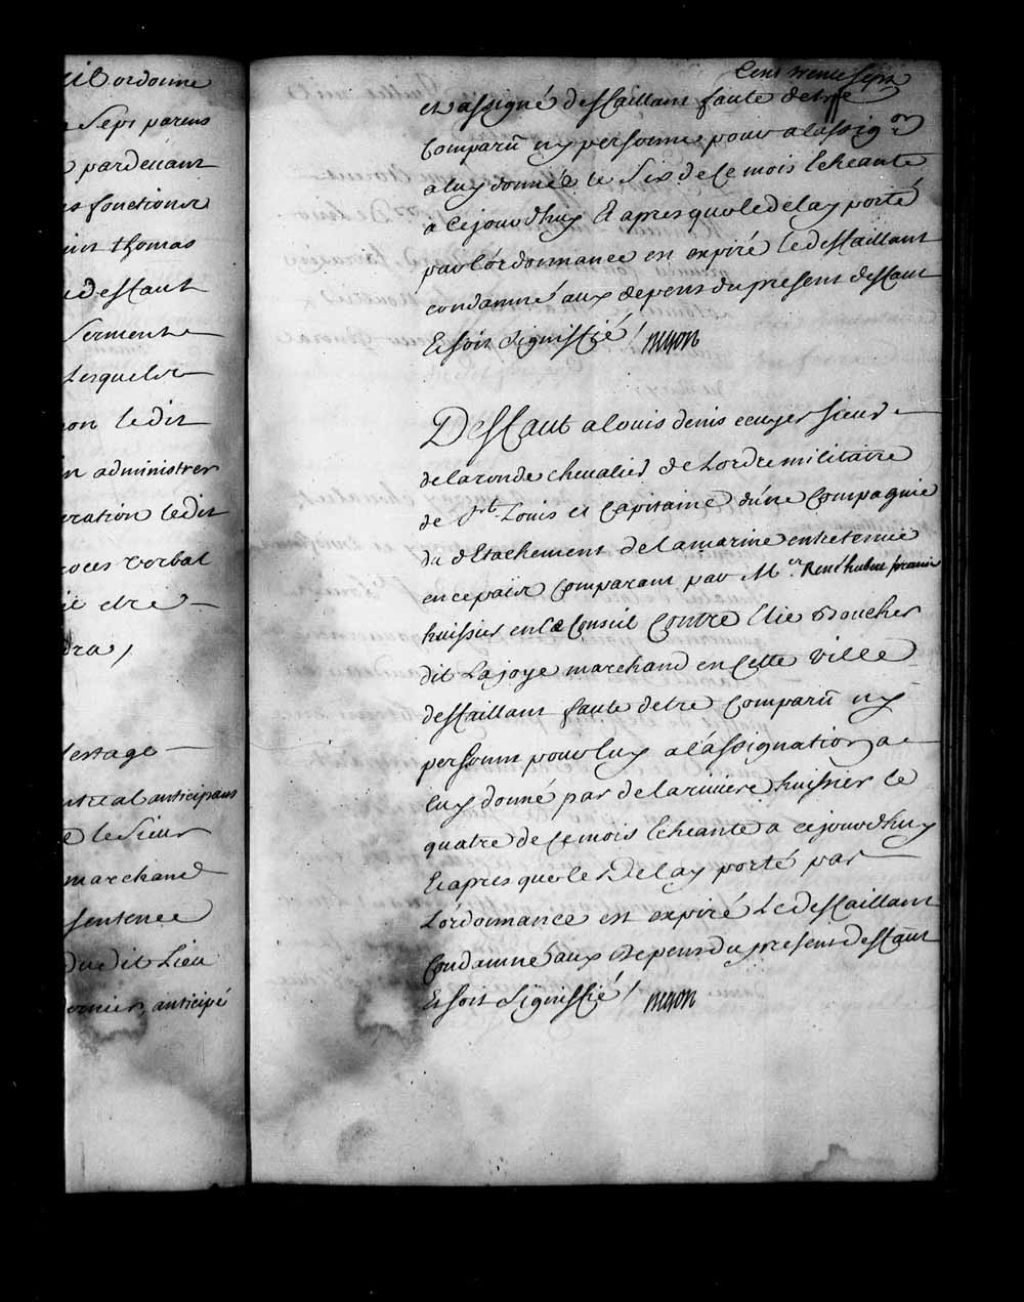 il ordonne
Sept parens
pardevant
fonctions
thomas
deffaut
Serment
Lesquels
ledit
administrer
ledit
verbal
etre
dra /
lestage
anticipant
le Sieur
marchand
sentence
dudit Lieu
anticipé
Cent trente Sept
et assigné deffaillant faute detre
Comparu ny personne pour a lassig.on
a luy donnée le Six de ce mois Echeante
a ce jourdhuy Et apres que le delay porté
par l'ordonnance en expiré le deffaillant
condamné aux depens du present deffaut
Et soit Signiffié / nyon
Deffaut a louis denis ecuyer Sieur
de la ronde chevalier de Lordre militaire
de St. Louis et Capitaine dúne Compagnie
du détachement de la marine entretenue
en ce païs Comparant par Me. René hubert premier
huissier en Ce Conseil Contre Elie Boucher
dit Lajoye marchand en Cette ville
deffaillant faute detre Comparu ny
personne pour luy a l'assignation a
luy donné par de lariviere huissier le
quatre de Ce mois Echeante a ce jourdhuy
Et apres que le Delay porté par
Lórdonnance est expiré Le deffaillant
Condamné aux depens du present deffaut
Et soit Signiffié / nyon